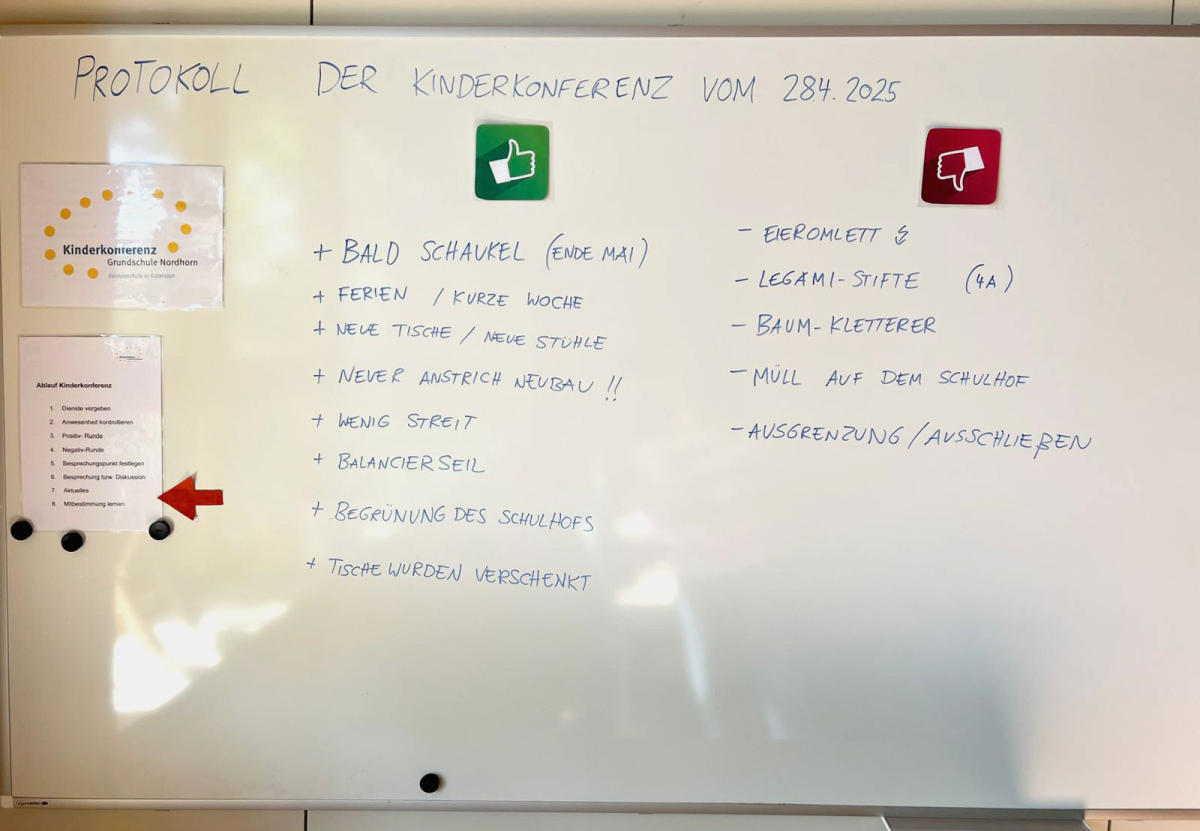 PROTOKOLL DER KINDERKONFERENZ VOM 28.4. 2025
Kinderkonferenz
Grundschule Nordhorn
Ablauf Kinderkonferenz
1. Dienste vergeben
2. Anwesenheit kontrollieren
3. Positiv- Runde
4. Negativ-Runde
5. Besprechungspunkt festlegen
6. Besprechung bzw. Diskussion
7. Aktuelles
8. Mitbestimmung lernen
+ BALD SCHAUKEL (ENDE MAI)
+ FERIEN / KURZE WOCHE
+ NEUE TISCHE / NEUE STÜHLE
+ NEUER ANSTRICH NEUBAU !!
+ WENIG STREIT
+ BALANCIERSEIL
+ BEGRÜNUNG DES SCHULHOFS
+ TISCHE WURDEN VERSCHENKT
- EIEROMLETT
- LEGAMI-STIFTE (4A)
- BAUM-KLETTERER
- MÜLL AUF DEM SCHULHOF
- AUSGRENZUNG / AUSSCHLIEßEN